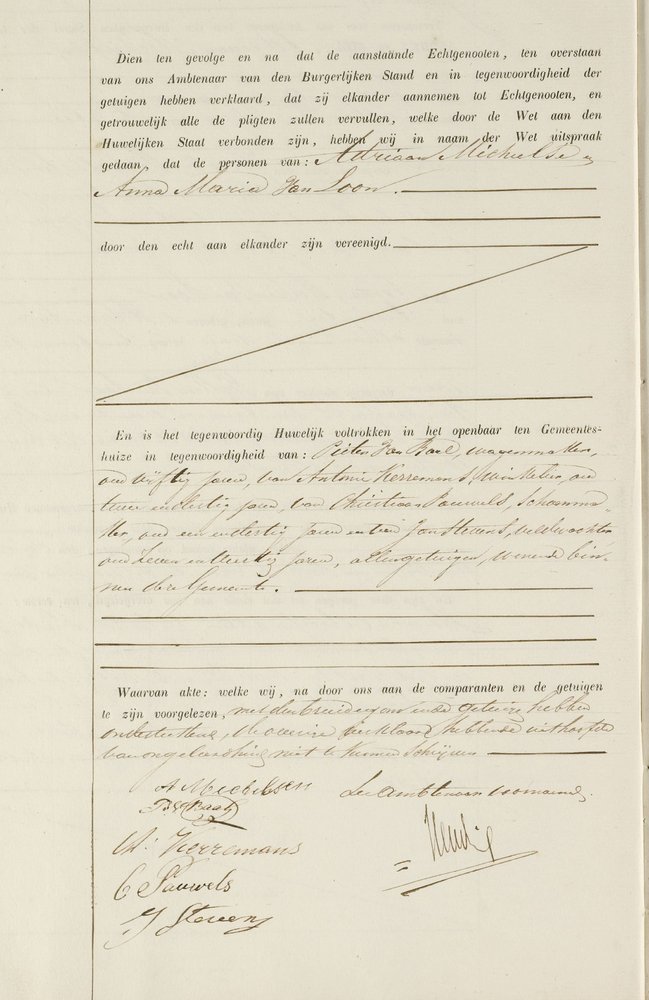 Dien ten gevolge en na dat de aanstaande Echtgenooten, ten overstaan
van ons Ambtenaar van den Burgerlijken Stand en in tegenwoordigheid der
getuigen hebben verklaard, dat zij elkander aannemen tot Echtgenooten, en
getrouwelijk alle de pligten zullen vervullen, welke door de Wet aan den
Huwelijken Staat verbonden zijn, hebben wij in naam der Wet uitspraak
gedaan, dat de personen van: Adriaan Michielse en
Anna Maria van Loon.
door den echt aan elkander zijn vereenigd.
En is het tegenwoordig Huwelijk voltrokken in het openbaar ten Gemeentes-
huize in tegenwoordigheid van: Pieter van Baal, wagenmaker,
oud vijftig jaren, van Antonie Kerremans, winkelier, oud
twee en dertig jaren, van Christiaan Pauwels, schoenma-
ker, oud een en dertig jaren en van Jan Stevens, veldwachter
oud zeven en veertig jaren, allen getuigen, wonende bin-
nen deze Gemeente.
Waarvan akte: welke wij, na door ons aan de comparanten en de getuigen
te zijn voorgelezen, met den bruidegom en de getuigen hebben
onderteekend, de overige verklaard hebbende uit hoofde
van ongeleerdheid niet te kunnen schrijven
A Michielsen
De Ambtenaar voornoemd.
P V Baal
A. Kerremans
C Pauwels
J Stevens